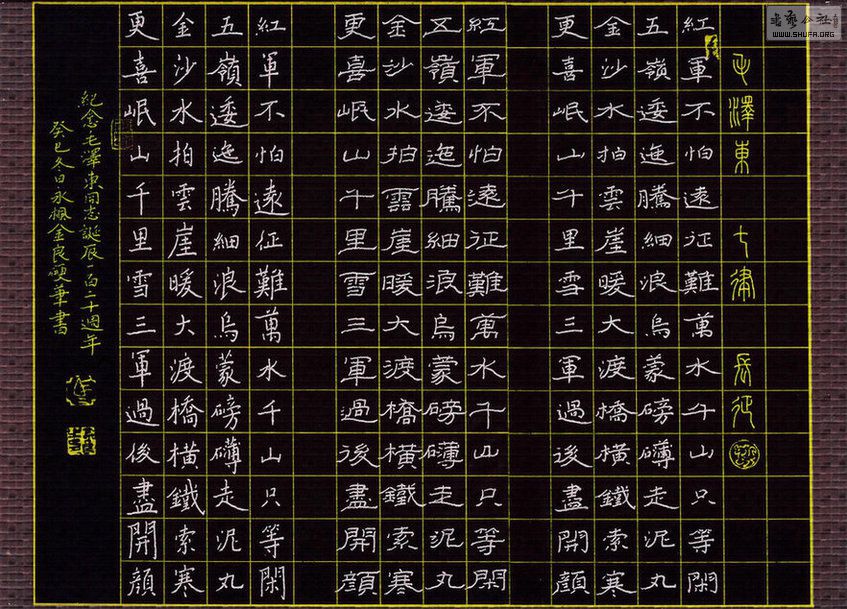 书艺公社
WWW.SHUFA.ORG
毛澤東 七律 長征
紅軍不怕遠征難萬水千山只等閑
五嶺逶迤騰細浪烏蒙磅礴走泥丸
金沙水拍雲崖暖大渡橋横鐵索寒
更喜岷山千里雪三軍過後盡開顔
紅軍不怕遠征難萬水千山只等閑
五嶺逶迤騰細浪烏蒙磅礴走泥丸
金沙水拍雲崖暖大渡橋横鐵索寒
更喜岷山千里雪三軍過後盡開顔
紅軍不怕遠征難萬水千山只等閑
五嶺逶迤騰細浪烏蒙磅礴走泥丸
金沙水拍雲崖暖大渡橋横鐵索寒
更喜岷山千里雪三軍過後盡開顔
紀念毛澤東同志誕辰一百二十週年
癸巳冬日永楓金良硬筆書